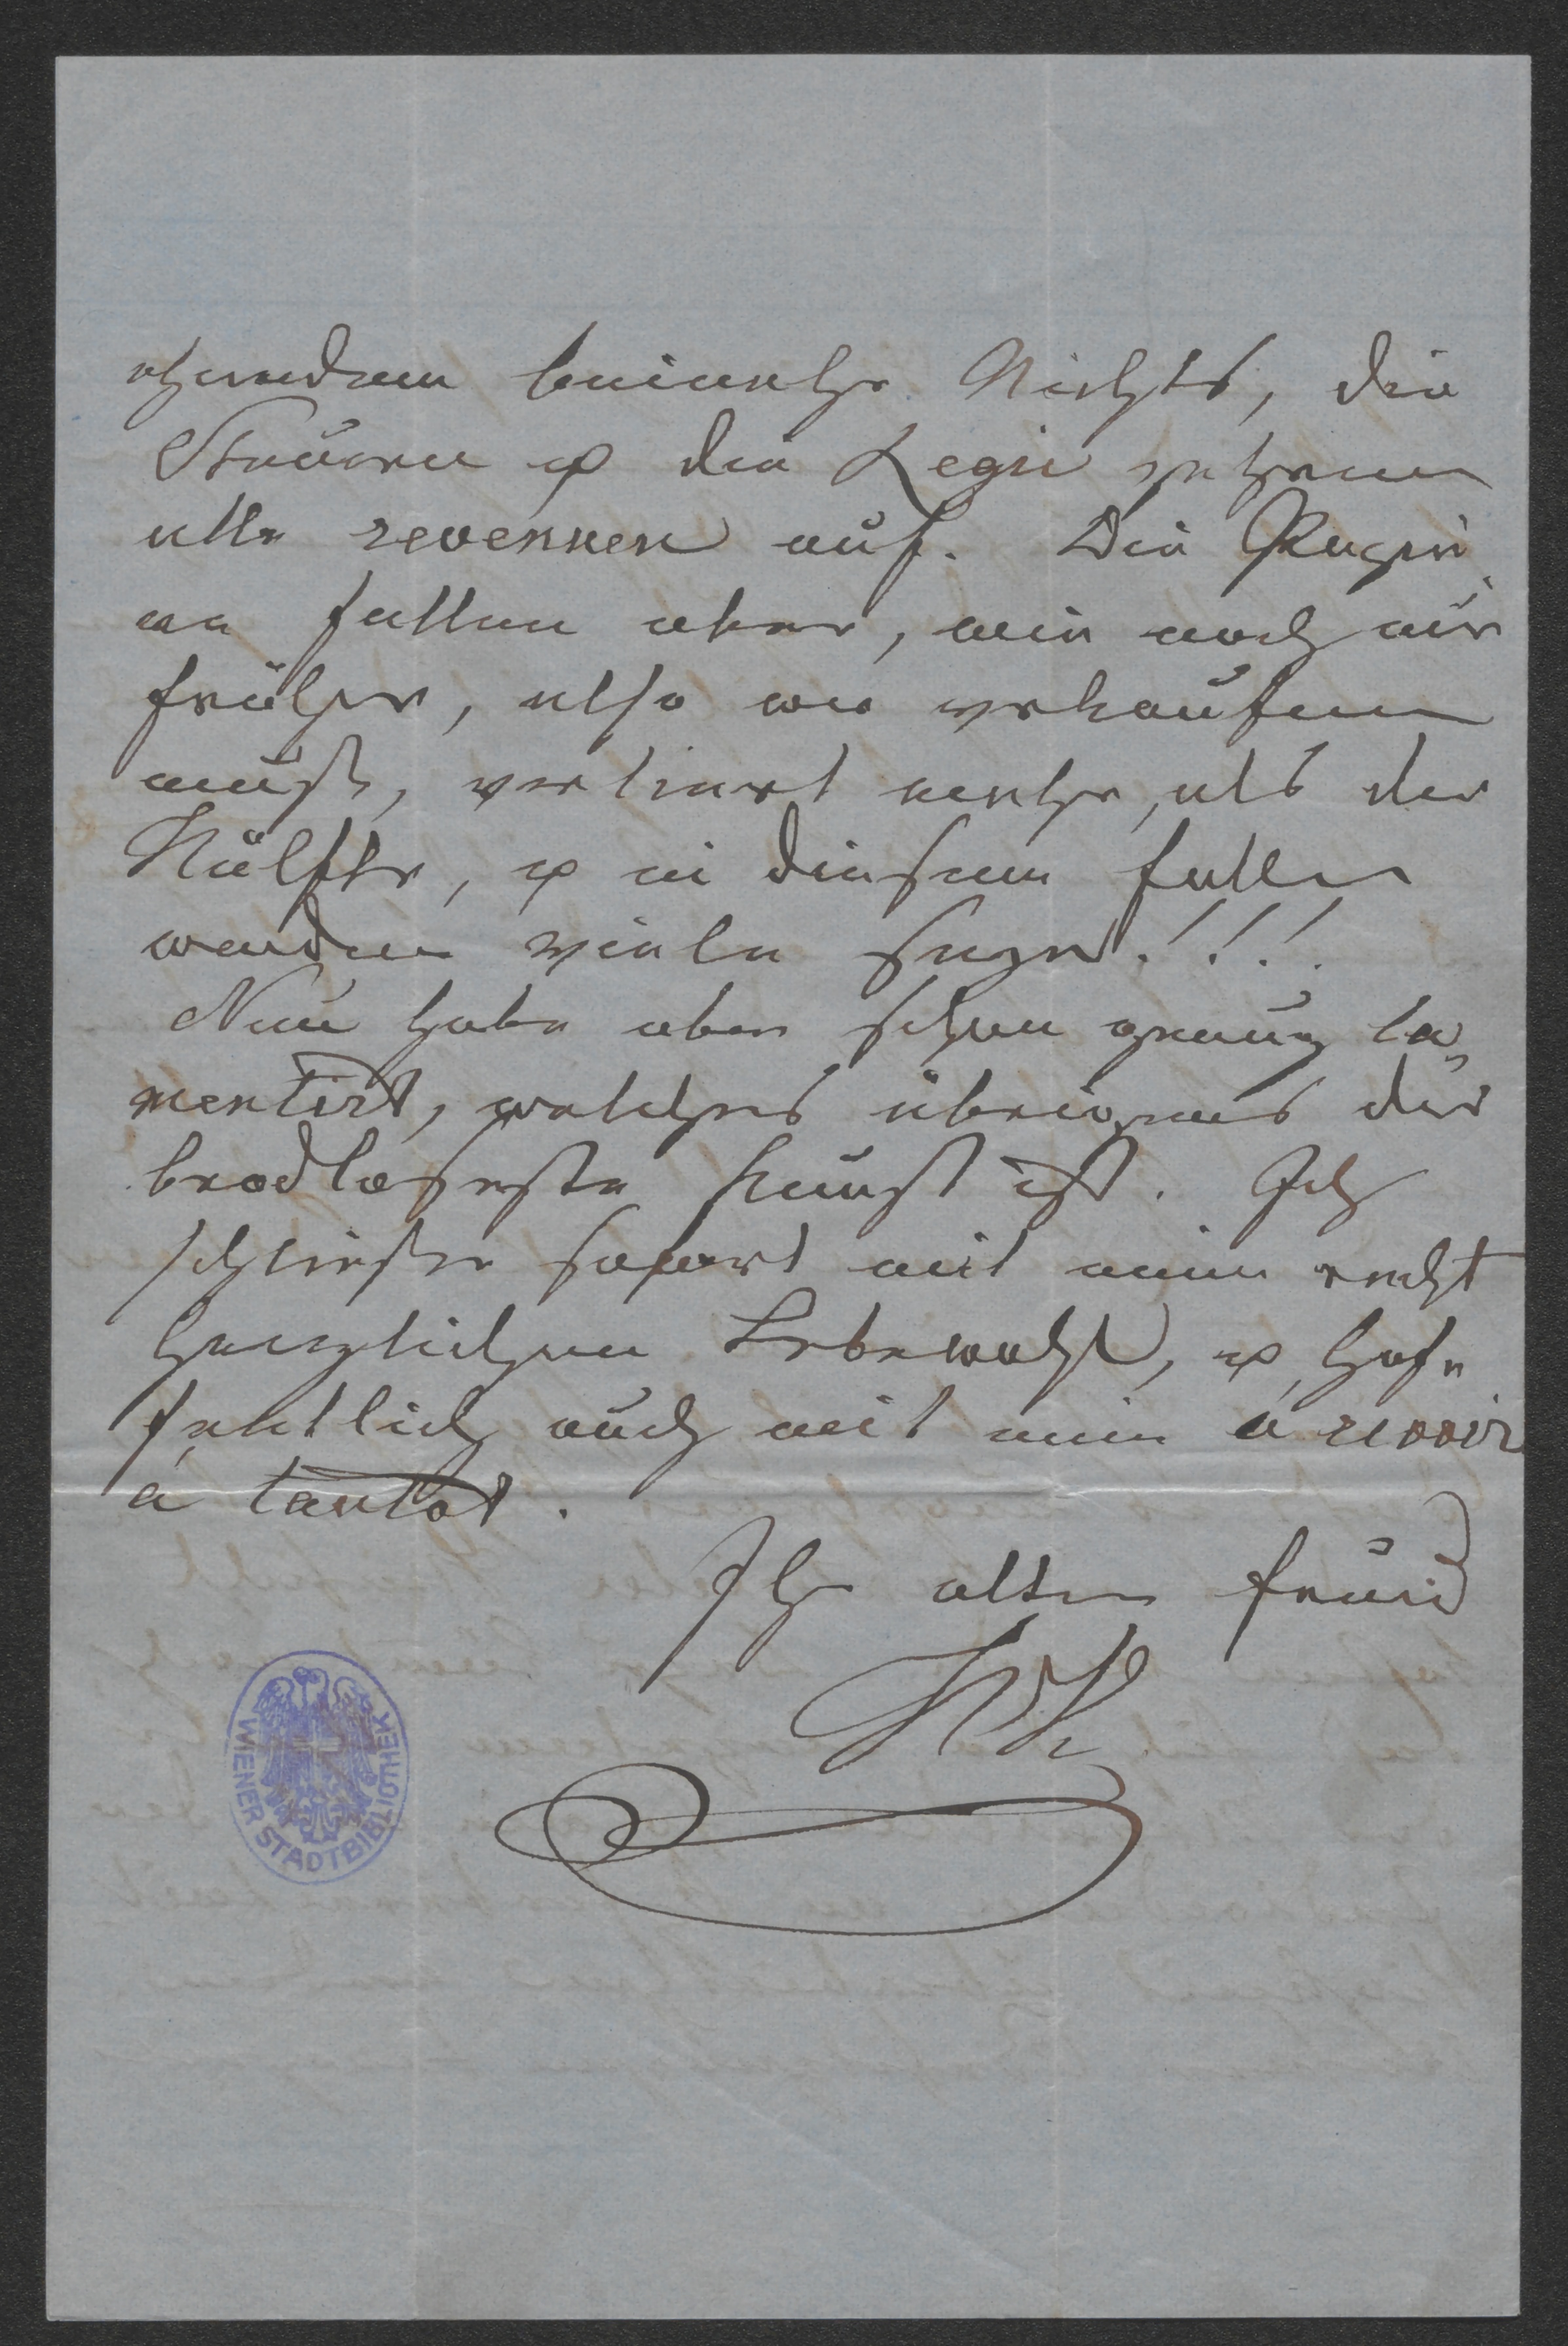 ehmdem beinahe Nichts, die
Steuern & die Regie zehren
alle revennen auf. Die Papir
en fallen aber, wie noch nie
früher, also wer verkaufen
muß, verliert mehr, als der
Hälfte, & in diesem falle
werden viele sein!!!
Nun habe aber schon genug la„
mentirt, welches übrigens die
brodloseste Kunst ist. Ich
schließe sofort mit einem recht
herzlichen Lebewohl, & hof„
fentlich auch mit einem a revoir
à tantot.
Ihr alter freund
WIENER STADTBIBLIOTHEK